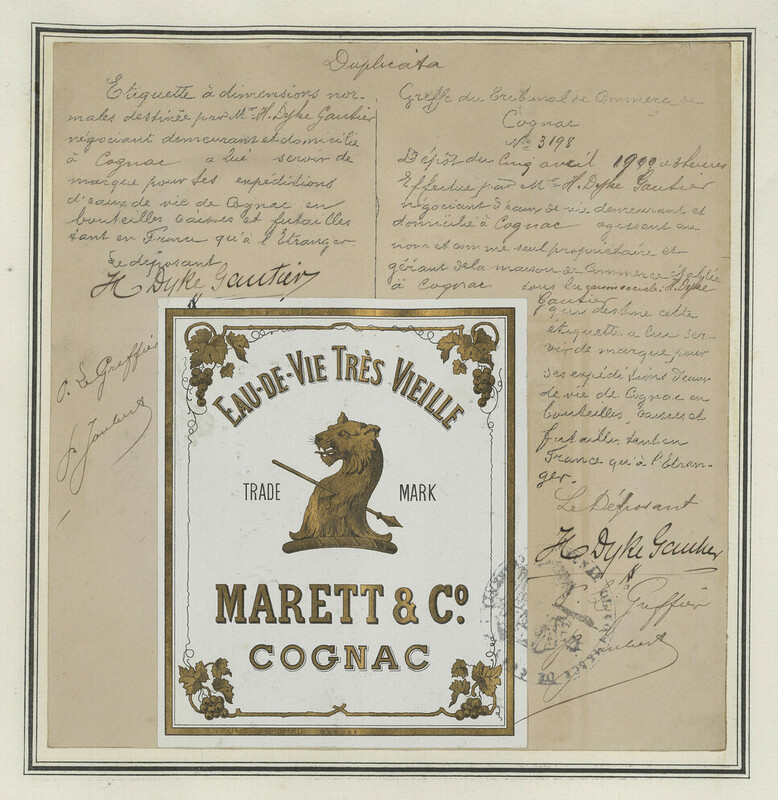 Duplicata
Etiquette à dimensions nor-
males destinée par Mr H. Dyke Gautier
négociant demeurant et domicilié
à Cognac a lui servir de
marque pour ses expéditions
d'eaux de vie de Cognac en
bouteilles caisses et futailles
tant en France qu'à l'Etranger
Le déposant
H Dyke Gautier
P. Le Greffier
Joubert
Greffe du Tribunal de Commerce de
Cognac
No 3198
Dépôt du Cinq avril 1900 heures
Effectué par Mr H. Dyke Gautier
négociant d'eaux de vie demeurant et
domicilié à Cognac agissant au
nom et comme seul propriétaire et
gérant de la maison de Commerce établie
à Cognac sous la raison sociale: H. Dyke
Gautier
qui destine cette
étiquette a lui ser-
vir de marque pour
ses expéditions d'eaux
de vie de Cognac en
bouteilles, caisses et
futailles tant en
France qu'à l'Etran-
ger.
Le Déposant
H Dyke Gautier
Greffier
Joubert
EAU-DE-VIE TRÈS VIEILLE
TRADE MARK
MARETT & Co.
COGNAC